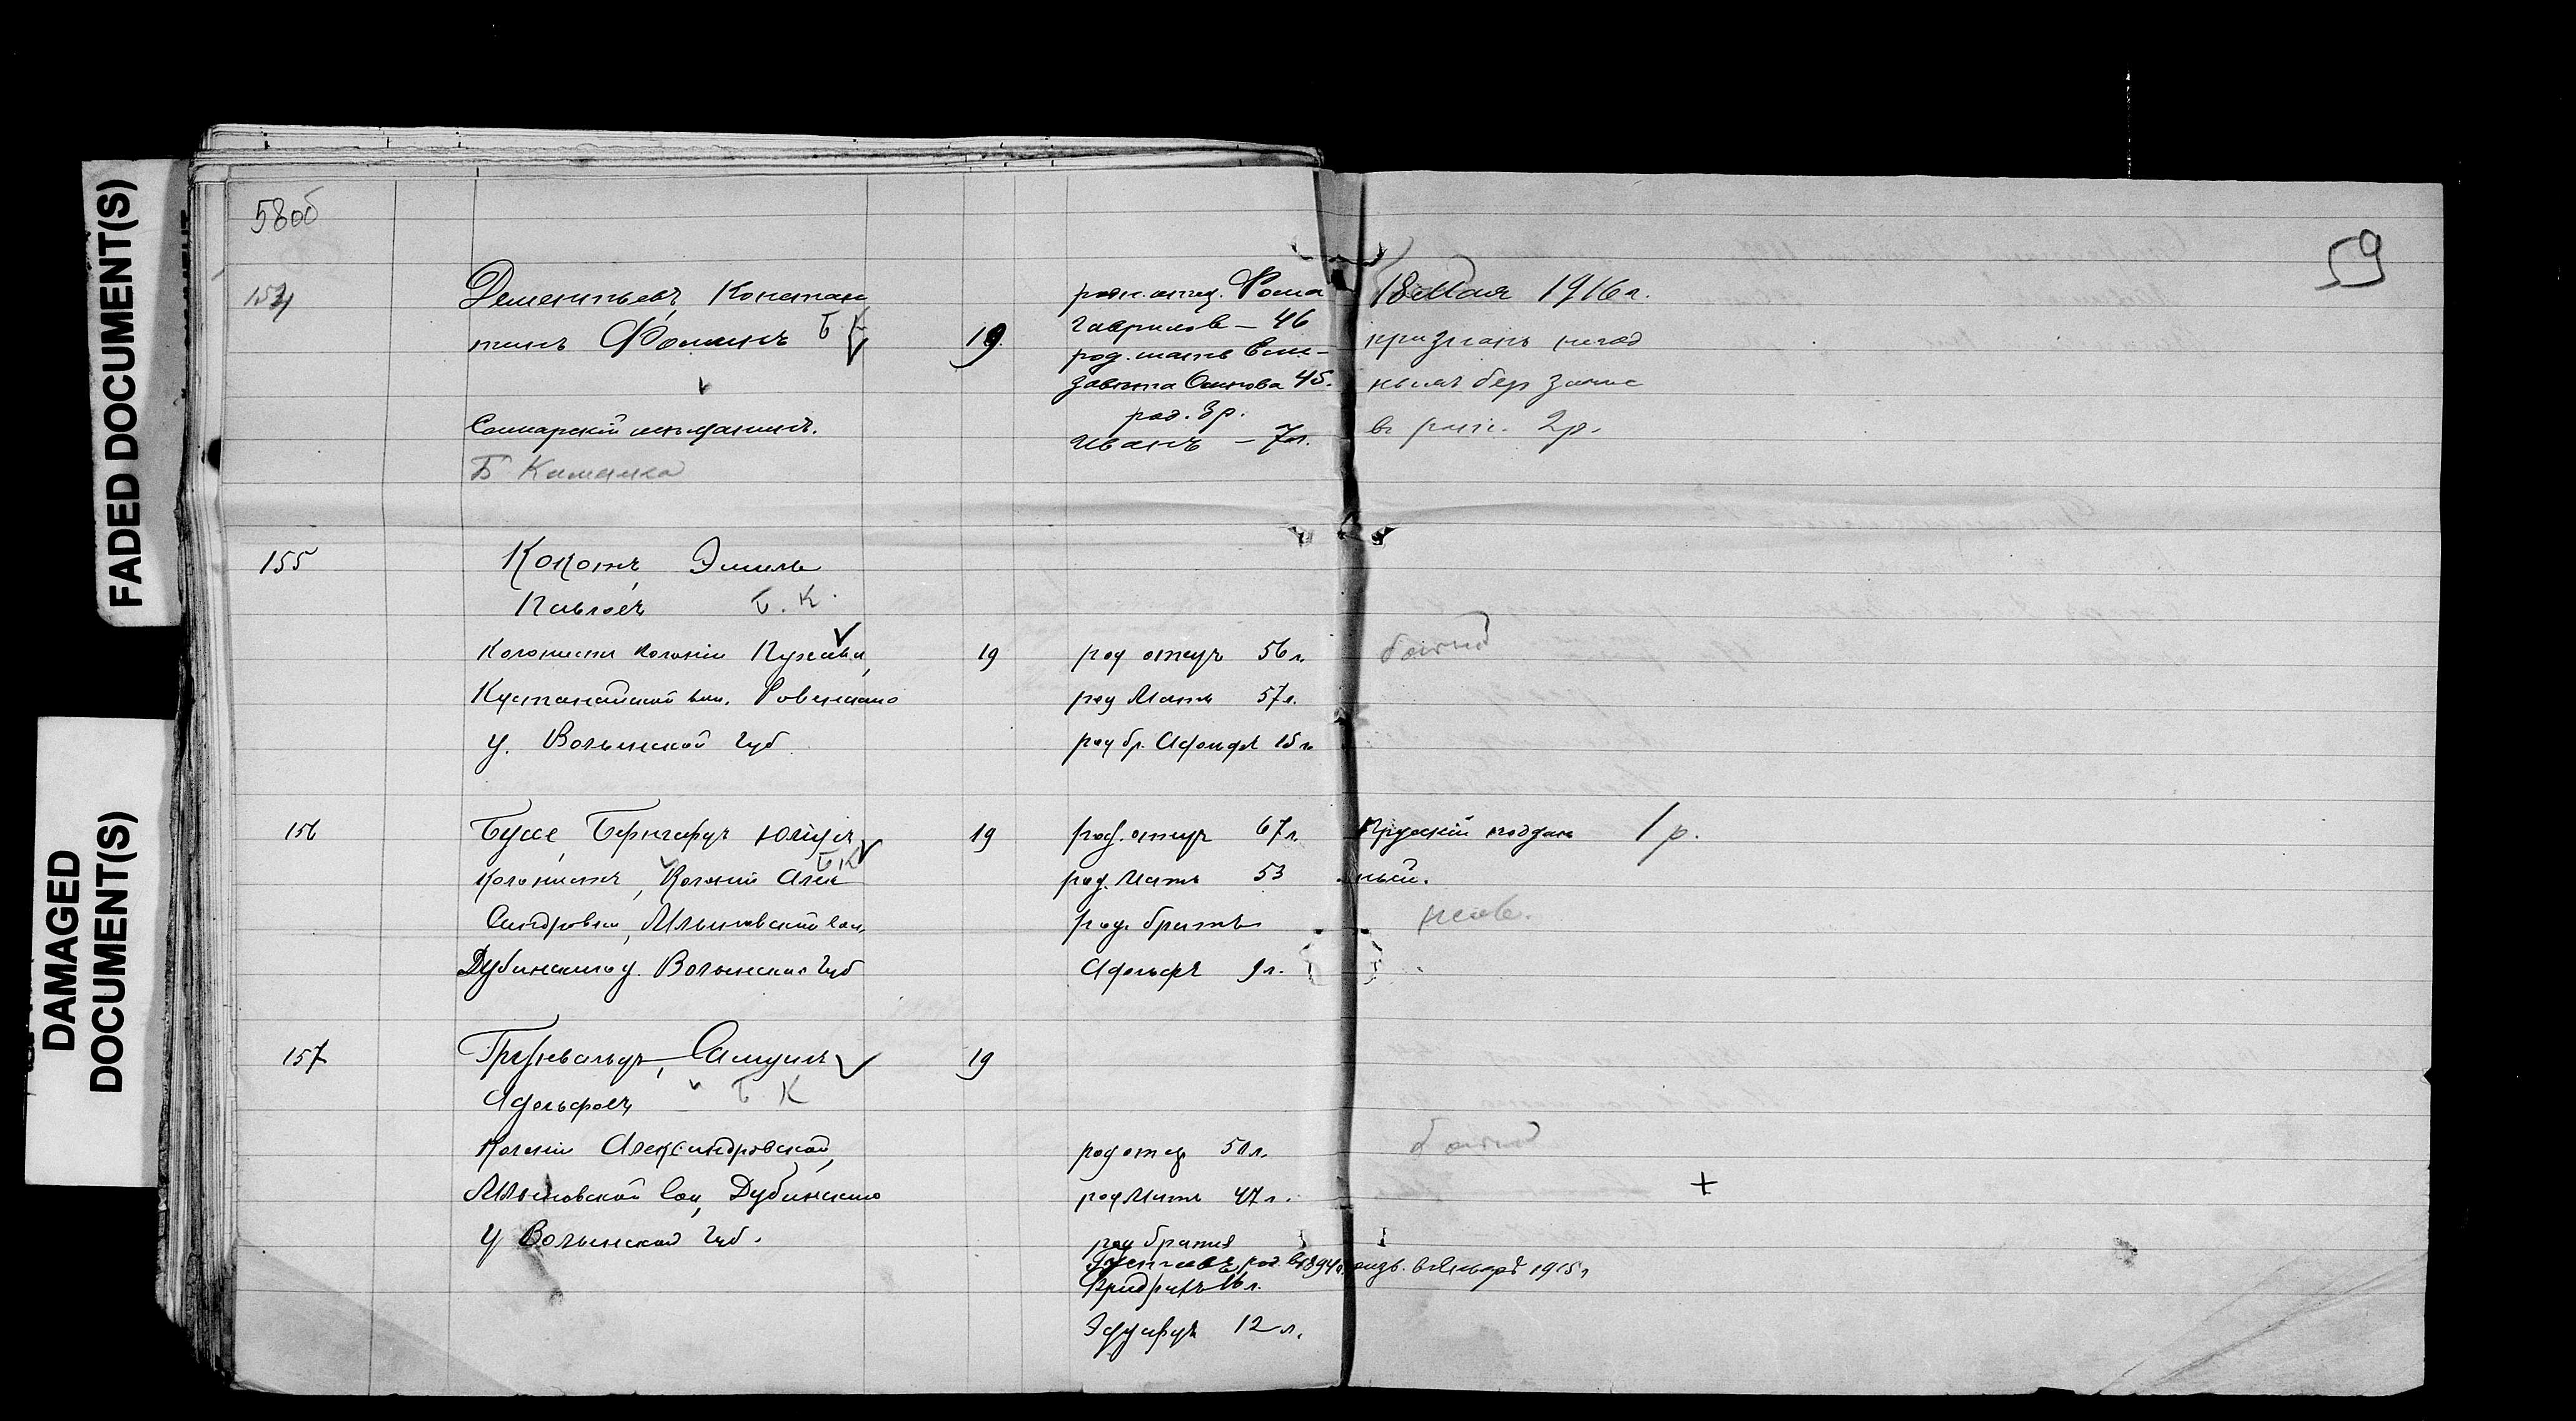 FADED DOCUMENT(S)
DAMAGED
DOCUMENT(S)
58об
59
154
Дементьевъ, Констан
тинъ Фоминъ Б К
Самарскій мѣщанинъ.
Б Каменка
19
родн. отец. Фома
Гаврилов – 46
род. мать Ели-
завета Осипова 45.
род. бр.
Иванъ – 7л.
18 Мая 1916 г.
признанъ негод
нымъ
2р.
155
Кокотъ, Эмиль
Павловъ Б. К.
Колонистъ Колоніи
вол. Ровенскаго
у. Волынской Губ
19
род отецъ 56 л.
род Мать 57 л.
род бр. Адольфъ 15 л.
156
Буссе, Бернгардъ Юліусъ
Б К
Колонистъ, Колоніи Алек
сандровки, Млыновской вол,
Дубинскаго у. Волынской Губ
19
род. отецъ 67 л.
род. Мать 53
род. братъ
Адольфъ 9 л.
Прускій поддан
ный.
1 р.
157
Грунвальдъ, Самуилъ
Адольфовъ Б К
Колоніи Александровской,
Млыновской вол, Дубинскаго
у Волынской Губ.
19
род отец 50 л.
род Мать 47 л.
род братья
Густавъ, род. в 1894 г. призв. в Январѣ 1915 г
Фридрихъ 16 л.
Эдуардъ 12 л.
+